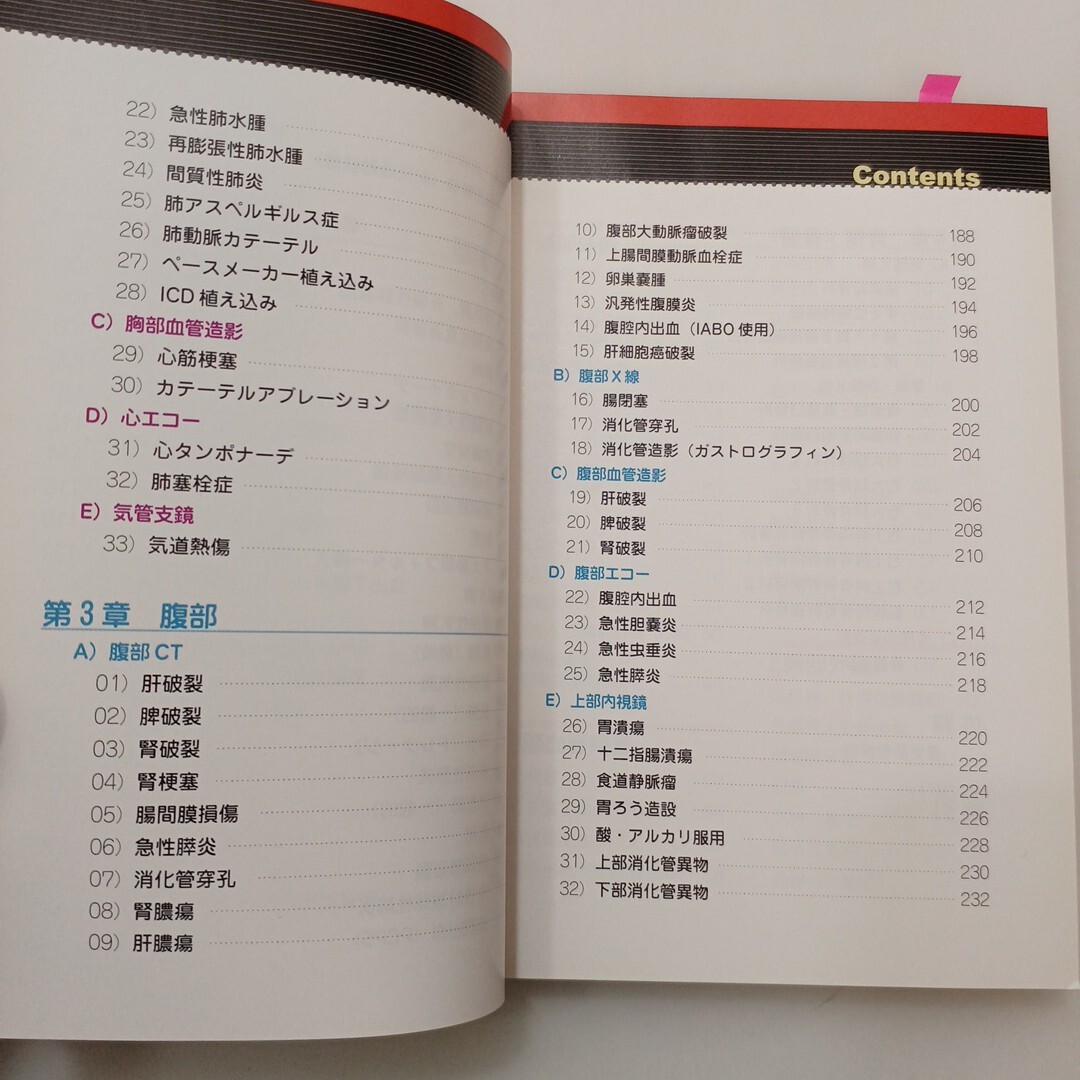 22) 急性肺水腫
23) 再膨張性肺水腫
24) 間質性肺炎
25) 肺アスペルギルス症
26) 肺動脈カテーテル
27) ペースメーカー植え込み
28) ICD 植え込み
C) 胸部血管造影
29) 心筋梗塞
30) カテーテルアブレーション
D) 心エコー
31) 心タンポナーデ
32) 肺塞栓症
E) 気管支鏡
33) 気道熱傷
第3章 腹部
A) 腹部 CT
01) 肝破裂
02) 脾破裂
03) 腎破裂
04) 腎梗塞
05) 腸間膜損傷
06) 急性膵炎
07) 消化管穿孔
08) 腎膿瘍
09) 肝膿瘍
Contents
10) 腹部大動脈瘤破裂 188
11) 上腸間膜動脈血栓症 190
12) 卵巣嚢腫 192
13) 汎発性腹膜炎 194
14) 腹腔内出血（IABO 使用） 196
15) 肝細胞癌破裂 198
B) 腹部 X 線
16) 腸閉塞 200
17) 消化管穿孔 202
18) 消化管造影（ガストログラフィン） 204
C) 腹部血管造影
19) 肝破裂 206
20) 脾破裂 208
21) 腎破裂 210
D) 腹部エコー
22) 腹腔内出血 212
23) 急性胆嚢炎 214
24) 急性虫垂炎 216
25) 急性膵炎 218
E) 上部内視鏡
26) 胃潰瘍 220
27) 十二指腸潰瘍 222
28) 食道静脈瘤 224
29) 胃ろう造設 226
30) 酸・アルカリ服用 228
31) 上部消化管異物 230
32) 下部消化管異物 232